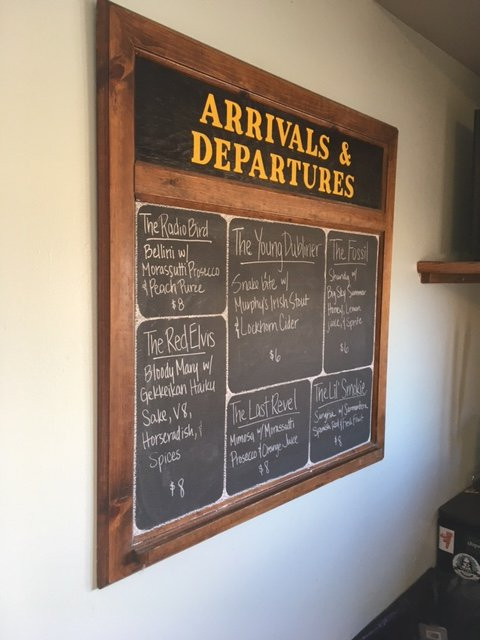 ARRIVALS &
DEPARTURES
The Radio Bird
Bellini w/
Morassutti Prosecco
& Peach Puree
$8
The Young Dubliner
Snake bite w/
Murphy's Irish Stout
& Lockhorn Cider
$6
The Fossil
Shandy w/
Big Sky Summer
Honey, Lemon
Juice, & Sprite
$6
The Red Elvis
Bloody Mary w/
Gekkeikan Haiku
Sake, V8,
Horseradish, &
Spices
$8
The Last Revel
Mimosa w/ Morassutti
Prosecco & Orange Juice
$8
The Lil' Smokie
Sangria w/
Spanish Red & Fresh Fruit
$8